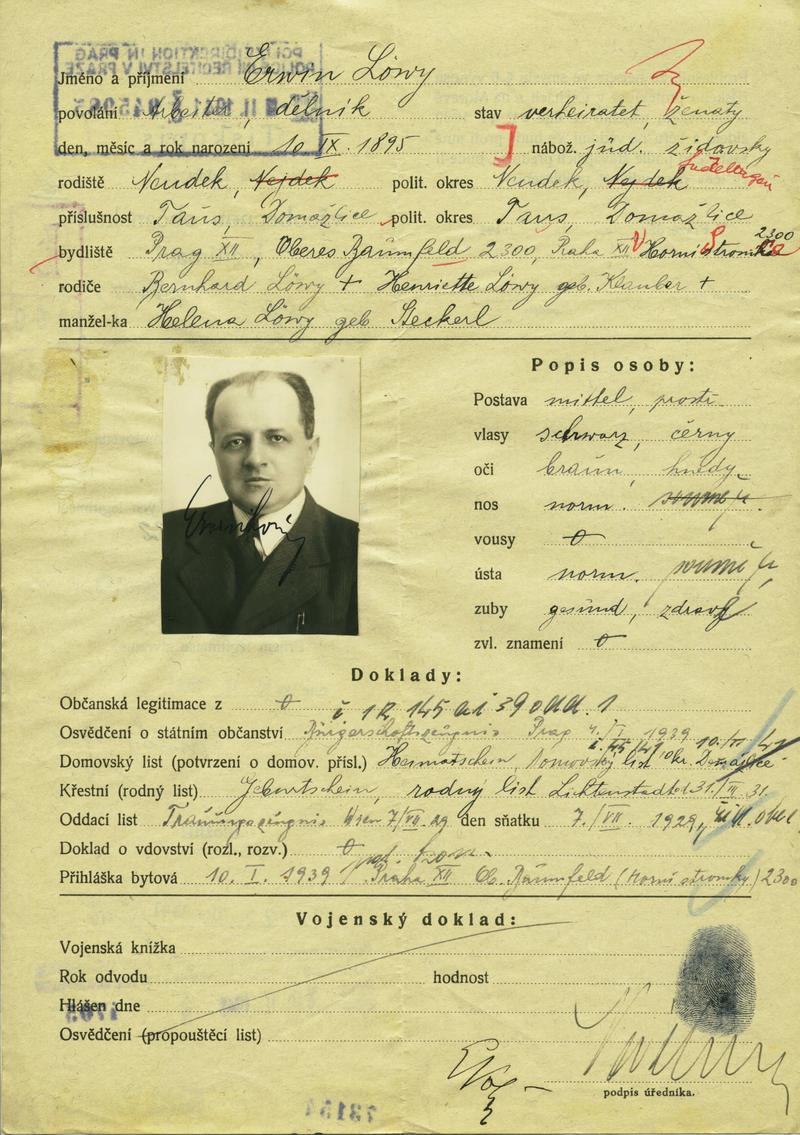 Jméno a příjmení Erwin Löwy
povolání Arbeiter, dělník stav verheiratet, ženatý
den, měsíc a rok narození 10. IX. 1895 nábož. jüd. židovsky
rodiště Neudek, Nejdek polit. okres Neudek, Nejdek
příslušnost Taus, Domažlice polit. okres Taus, Domažlice
2300
bydliště Prag XII, Oberes Baumfeld 2300, Praha XII Horní stromka
rodiče Bernhard Löwy + Henriette Löwy geb. Klauber +
manžel-ka Helena Löwy geb Steckerl
Popis osoby:
Postava mittel, prostř.
vlasy schwarz, černý
oči braun, hnědý
nos norm.
vousy 0
ústa norm.
zuby gesund, zdravé
zvl. znamení 0
Doklady:
Občanská legitimace z 0
Osvědčení o státním občanství Prag 1939
Domovský list (potvrzení o domov. přísl.) Heimatschein, Domovský list
Křestní (rodný list) Geburtschein, rodný list Lichtenstadt 31.
Oddací list Trauungszeugnis Wien 7/VII. 29 den sňatku 7./VII. 1929,
Doklad o vdovství (rozl., rozv.) 0
Přihláška bytová 10. I. 1939 Praha XII Ob. Baumfeld (Horní stromky) 2300
Vojenský doklad:
Vojenská knížka
Rok odvodu hodnost
Hlášen dne
Osvědčení (propouštěcí list)
podpis úředníka.